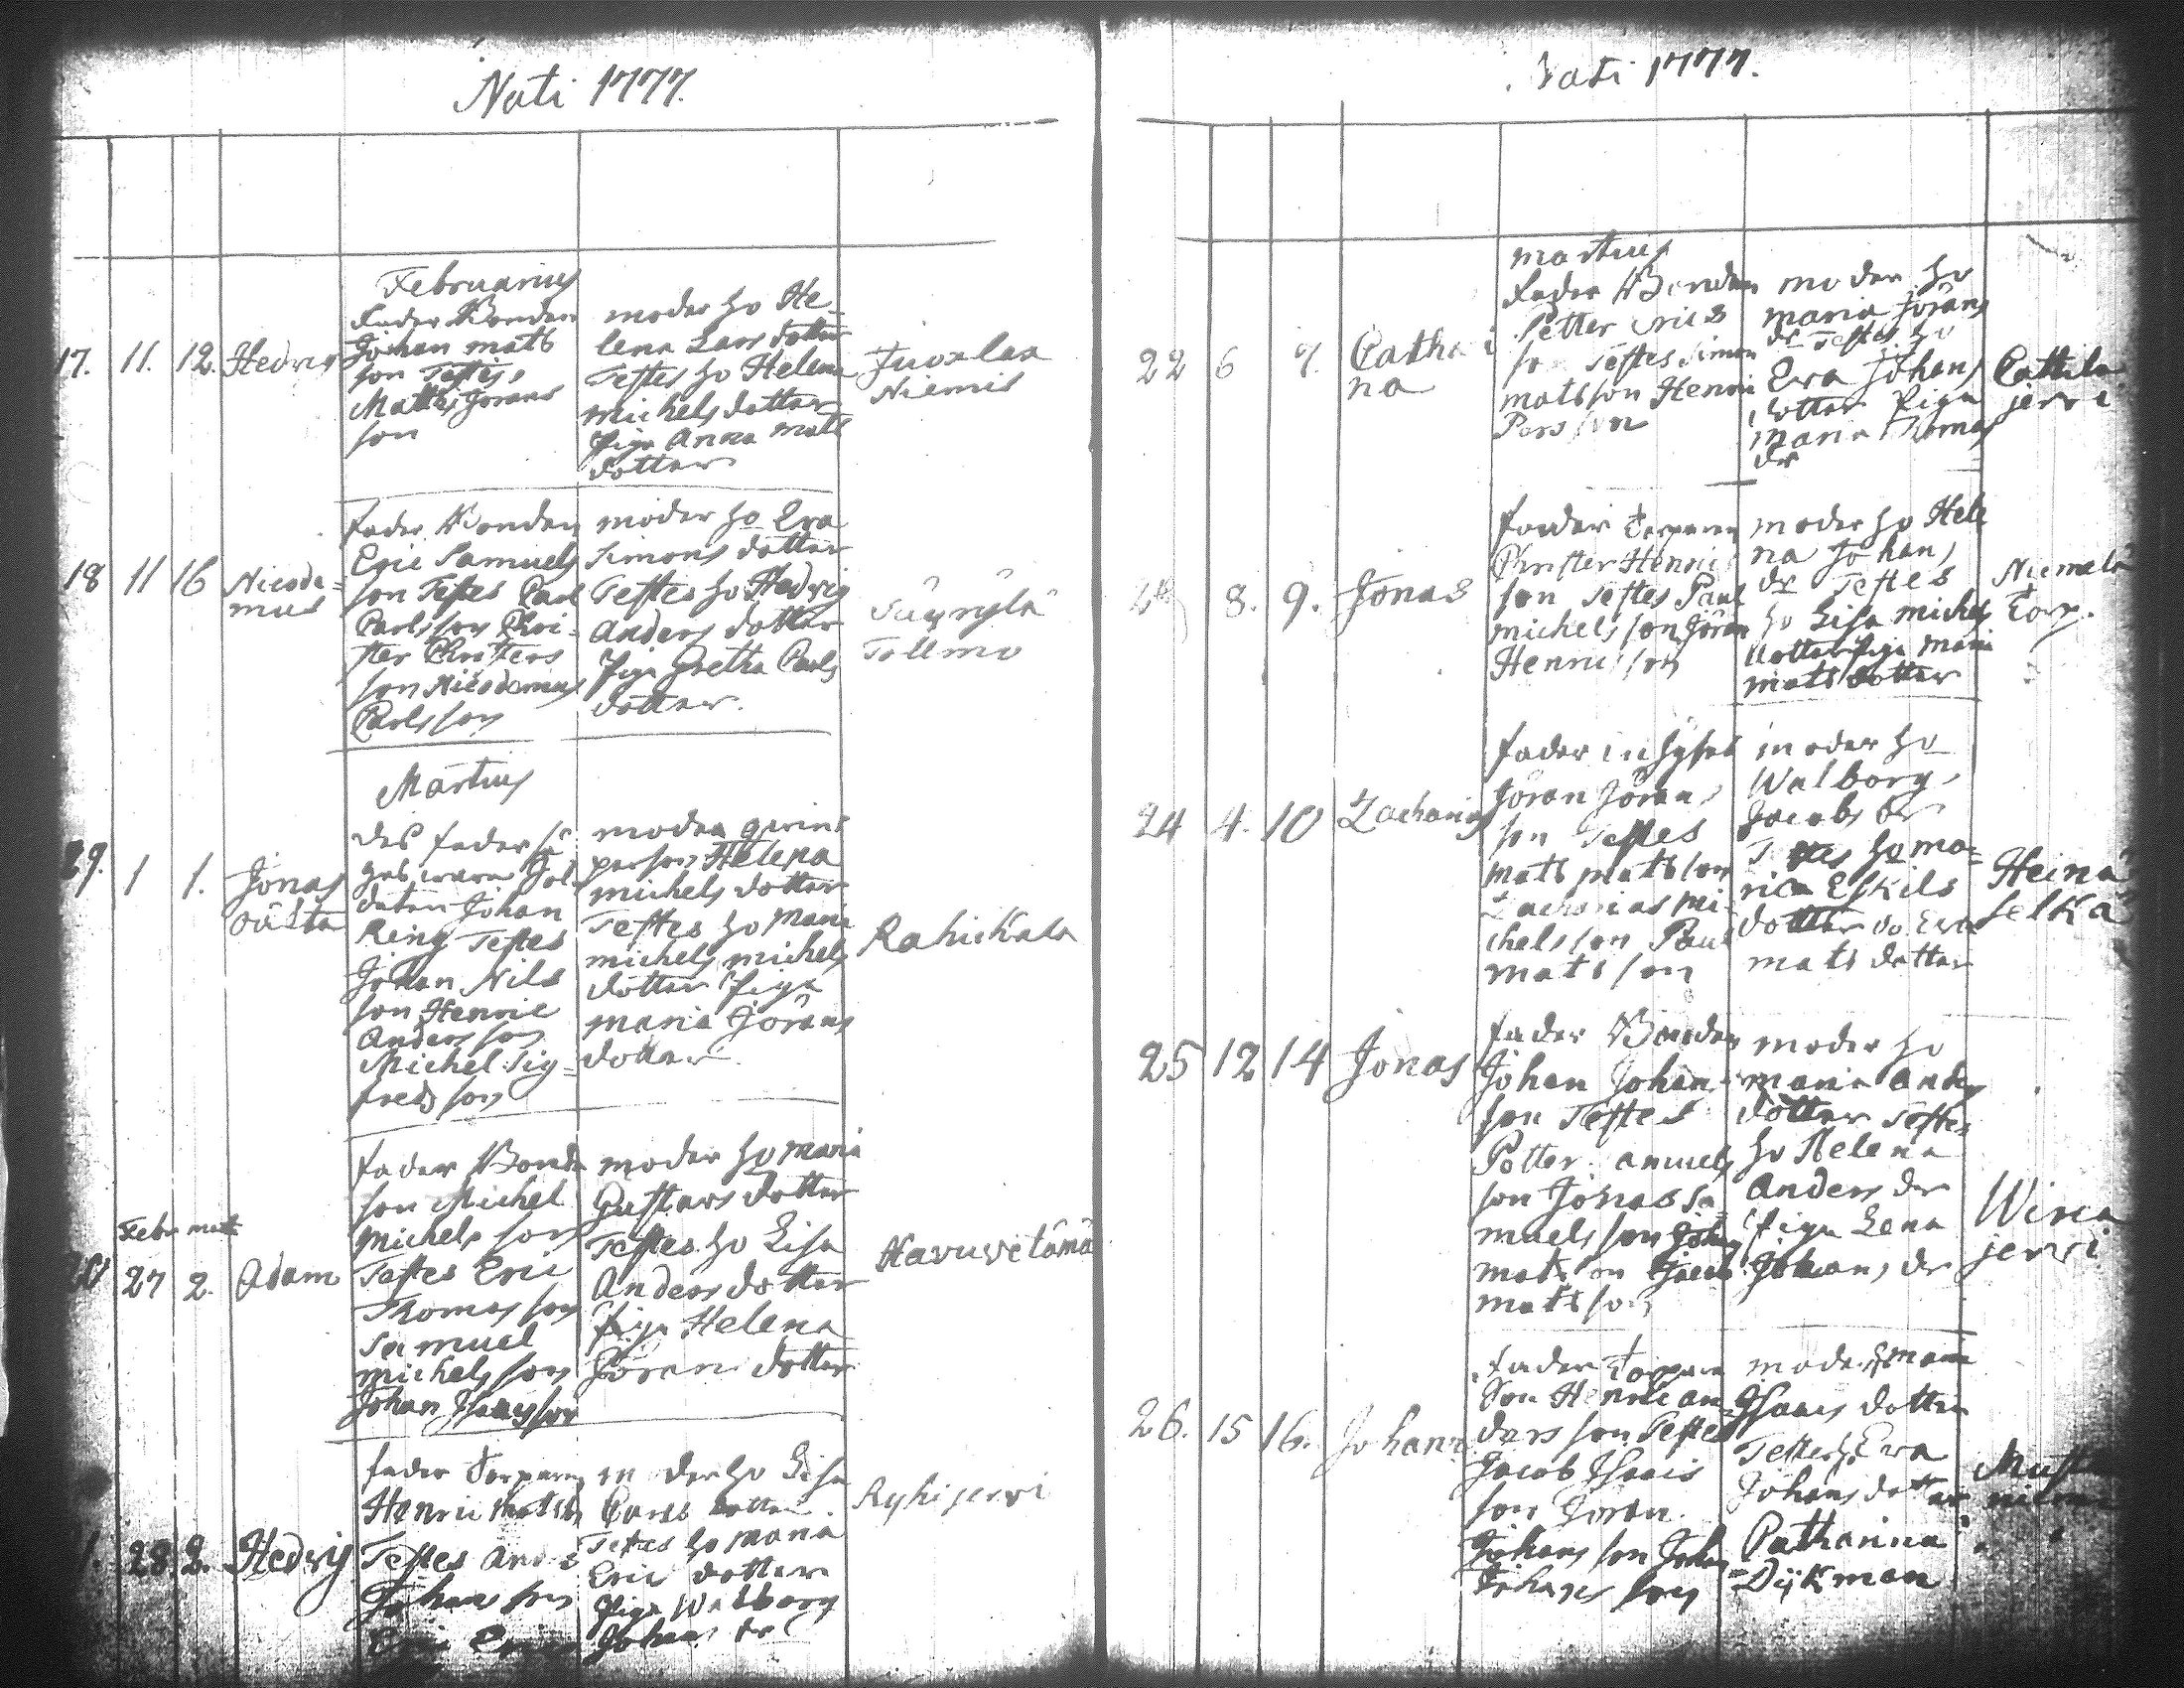 Nati 1777.
Februarius
17. 11. 12. Hedvig
Fader Bonden
Johan mats
son Testes
Matts Jörans
son
moder ho He-
lena Lars dotter
Testes ho Helena
michels dotter
Piga Anna mats
dotter
Niemis
18 11 16 Nicode=
mus
fader Bonden
Eric Samuels
son Testes Carl
Carlsson Chri-
ster Christers
son Nicodemus
Carlsson
moder ho Eva
Simons dotter
Testes ho Hedvig
Anders dotter
Piga Gretha Carls
dotter.
Säyrylä
Martius
1 1. Jonas
oäkta
des fader
daten Johan
Ring Testes
Johan Nils
son Henric
Andersson
Michel Sig=
fredsson
moder qvins
person Helena
michels dotter
Testes ho Maria
michels michels
dotter Piga
maria Jörans
dotter.
Rahickala
Febr mart
27 2. Adam
fader Bonde
son Michel
Michelsson
Testes Eric
Thomasson
Samuel
michelsson
Johan Isacsson
moder ho Maria
Gustavs dotter
Testes ho Lisa
Anders dotter
Piga Helena
Jöran dotter
Havuvetämä
28 2. Hedvig
fader Torparen
Henric Matts
Testes Anders
Johansson
moder ho Lisa
dotter
Testes ho Maria
Eric dotter
Piga Walborg
Johans dr
Ryhijervi
Nati 1777.
Martius
22 6 9. Catha
na
Fader Bonden
Petter Erics
son Testes Simon
matsson Henric
Persson
moder ho
maria Jörans
dr Testes ho
Eva Johans
dotter Piga
maria Thomas
dr
Cattila
jervi
8. 9. Jonas
fader Torparen
Christer Henric
son Testes Paul
michelsson Jöran
Henricsson
moder ho Hele
na Johans
dr Testes
ho Lisa michels
dotter Piga Maria
mats dotter
Niemelä
Torp.
24 4. 10 Zacharias
fader inhyses
Jöran Jörans
son Testes
Mats Matsson
Zacharias Mi-
chelsson Paul
matsson
moder ho
Walborg
Jacobs dr
Testes ho Ma=
ria Eskils
dotter do Eva
mats dotter
Heinä
selkä
25 12 14 Jonas
fader Bonden
Johan Johans
son Testes
Petter Samuels
son Jonas Sa=
muelsson Johan
matsson Jacob
matsson
moder ho
maria Anders
dotter Testes
ho Helena
Anders dr
Piga Lena
Johans dr
Wirta
jervi
26. 15 16. Johan
fader Torpare
Son Henric An=
dersson Testes
Jacob Isacs
son Jöran
Johansson Johan
Johansson
moder ho Maria
Isacs dotter
Testes ho Eva
Johans dotter
Catharina
Dykman